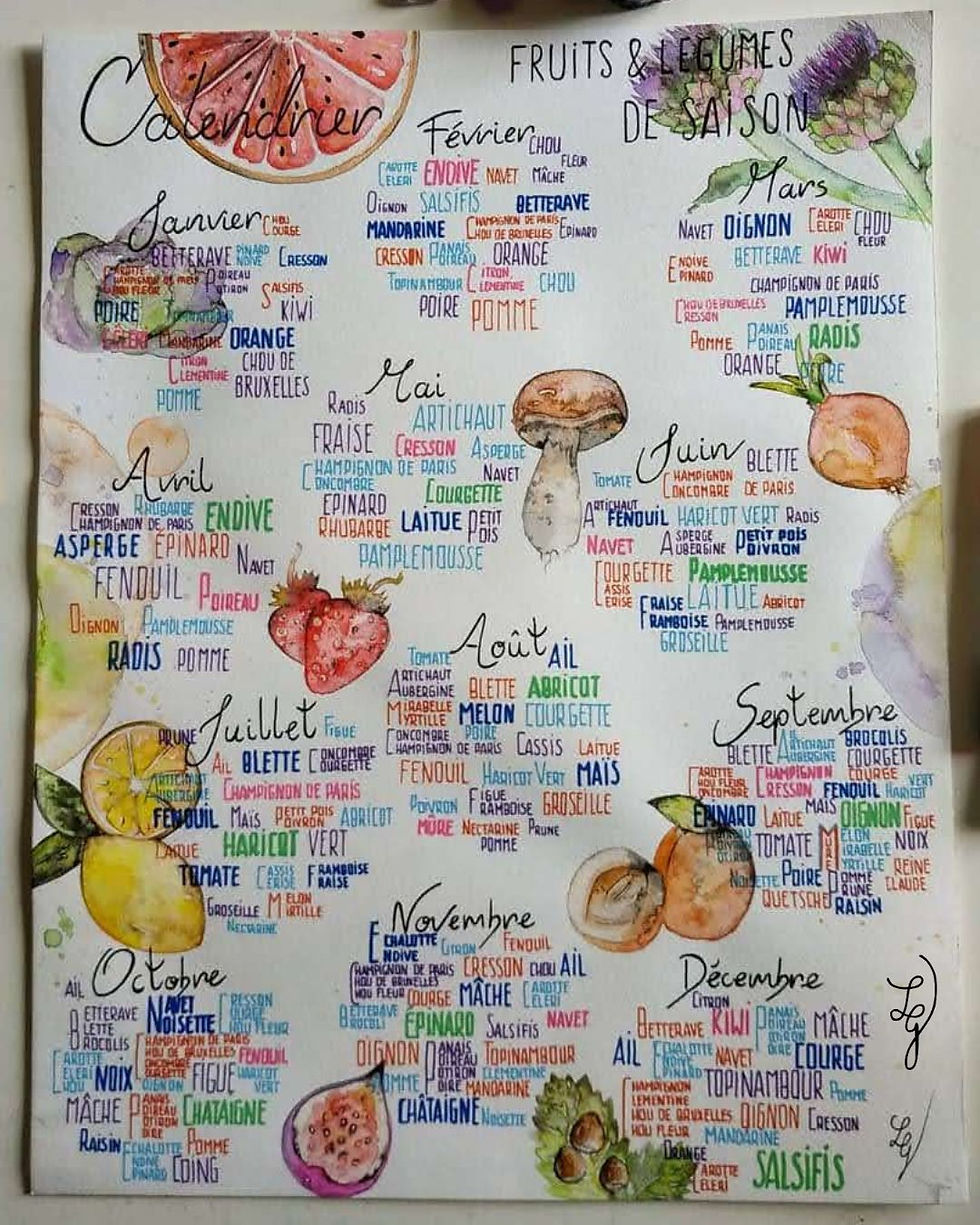 Calendrier
FRUITS & LEGUMES
DE SAISON
Janvier
CHOU
COURGE
BETTERAVE
CRESSON
CAROTTE
CHAMPIGNON DE PARIS
CHOU FLEUR
POIREAU
POTIRON
SALSIFIS
POIRE
KIWI
CÉLERI MANDARINE ORANGE
CITRON
CLEMENTINE
CHOU DE
BRUXELLES
POMME
Février
CHOU
FLEUR
CAROTTE
CELERI
ENDIVE NAVET MÂCHE
OIGNON SALSIFIS BETTERAVE
MANDARINE
CHAMPIGNON DE PARIS
CHOU DE BRUNELLES
EPINARD
CRESSON
PANAIS
POIREAU
ORANGE
TOPINAMBOUR
CITRON
CLEMENTINE
CHOU
POIRE POMME
Mars
NAVET OIGNON
CAROTTE
CELERI
CHOU
FLEUR
ENDIVE
EPINARD
BETTERAVE KIWI
CHAMPIGNON DE PARIS
CHOU DE BRUXELLES
CRESSON
PAMPLEMOUSSE
POMME
PANAIS
POIREAU
RADIS
ORANGE POIRE
Avril
CRESSON RHUBARBE
CHAMPIGNON DE PARIS
ENDIVE
ASPERGE ÉPINARD
NAVET
FENOUIL
POIREAU
OIGNON PAMPLEMOUSSE
RADIS POMME
Mai
RADIS
ARTICHAUT
FRAISE CRESSON ASPERGE
CHAMPIGNON DE PARIS
CONCOMBRE
NAVET
COURGETTE
EPINARD
RHUBARBE LAITUE
PETIT
POIS
PAMPLEMOUSSE
Juin
BLETTE
TOMATE
CHAMPIGNON
CONCOMBRE DE PARIS
ARTICHAUT
FENOUIL HARICOT VERT RADIS
NAVET
ASPERGE
AUBERGINE
PETIT POIS
POIVRON
COURGETTE
CASSIS
CERISE
PAMPLEMOUSSE
FRAISE LAITUE ABRICOT
FRAMBOISE PAMPLEMOUSSE
GROSEILLE
Juillet
PRUNE
FIGUE
AIL BLETTE
CONCOMBRE
COURGETTE
ARTICHAUT
AUBERGINE
CHAMPIGNON DE PARIS
FENOUIL MAÏS
PETIT POIS
POIVRON
ABRICOT
LAITUE HARICOT VERT
TOMATE
CASSIS
CERISE
FRAMBOISE
FRAISE
GROSEILLE
MELON
MIRTILLE
NECTARINE
Août
TOMATE
AIL
ARTICHAUT
AUBERGINE
BLETTE ABRICOT
MIRABELLE
MYRTILLE
MELON COURGETTE
CONCOMBRE POIRE
CHAMPIGNON DE PARIS
CASSIS LAITUE
FENOUIL HARICOT VERT MAÏS
POIVRON
FIGUE
FRAMBOISE
GROSEILLE
MÛRE NECTARINE PRUNE
POMME
Septembre
BLETTE
ARTICHAUT
AUBERGINE
BROCOLIS
COURGETTE
CAROTTE
CHOU FLEUR
CONCOMBRE
CHAMPIGNON
CRESSON
COURGE
FENOUIL
VERT
HARICOT
ÉPINARD LAITUE MAÏS OIGNON FIGUE
TOMATE
MURE
MELON
MIRABELLE
MYRTILLE
NOIX
NOISETTE POIRE
POMME
PRUNE
REINE
CLAUDE
QUETSCHE RAISIN
Octobre
AIL
BETTERAVE
BLETTE
BROCOLIS
NAVET
NOISETTE
CRESSON
COURGE
CHOU FLEUR
CAROTTE
CELERI
CHOU
NOIX
CHAMPIGNON DE PARIS
CHOU DE BRUXELLES
CONCOMBRE
FENOUIL
OIGNON
FIGUE
HARICOT
VERT
MÂCHE
PANAIS
POIREAU
POTIRON
POIRE
CHATAIGNE
RAISIN
ECHALOTTE
ENDIVE
EPINARD
POMME
COING
Novembre
ECHALOTTE
ENDIVE
CITRON
FENOUIL
CHAMPIGNON DE PARIS
CHOU DE BRUXELLES
CHOU FLEUR
CRESSON CHOU AIL
COURGE MÂCHE
CAROTTE
CELERI
BETTERAVE
BROCOLI
ÉPINARD SALSIFIS NAVET
OIGNON
PANAIS
POIREAU
POTIRON
POIRE
TOPINAMBOUR
POMME
CLEMENTINE
MANDARINE
CHÂTAIGNE NOISETTE
Décembre
CITRON
BETTERAVE KIWI
PANAIS
POIREAU
POTIRON
POIRE
MÂCHE
AIL
ECHALOTTE
ENDIVE
EPINARD
NAVET
COURGE
CHAMPIGNON
CLEMENTINE
CHOU DE BRUXELLES
CHOU FLEUR
TOPINAMBOUR POMME
OIGNON CRESSON
MANDARINE
ORANGE
CAROTTE
CELERI
SALSIFIS
LG
LG